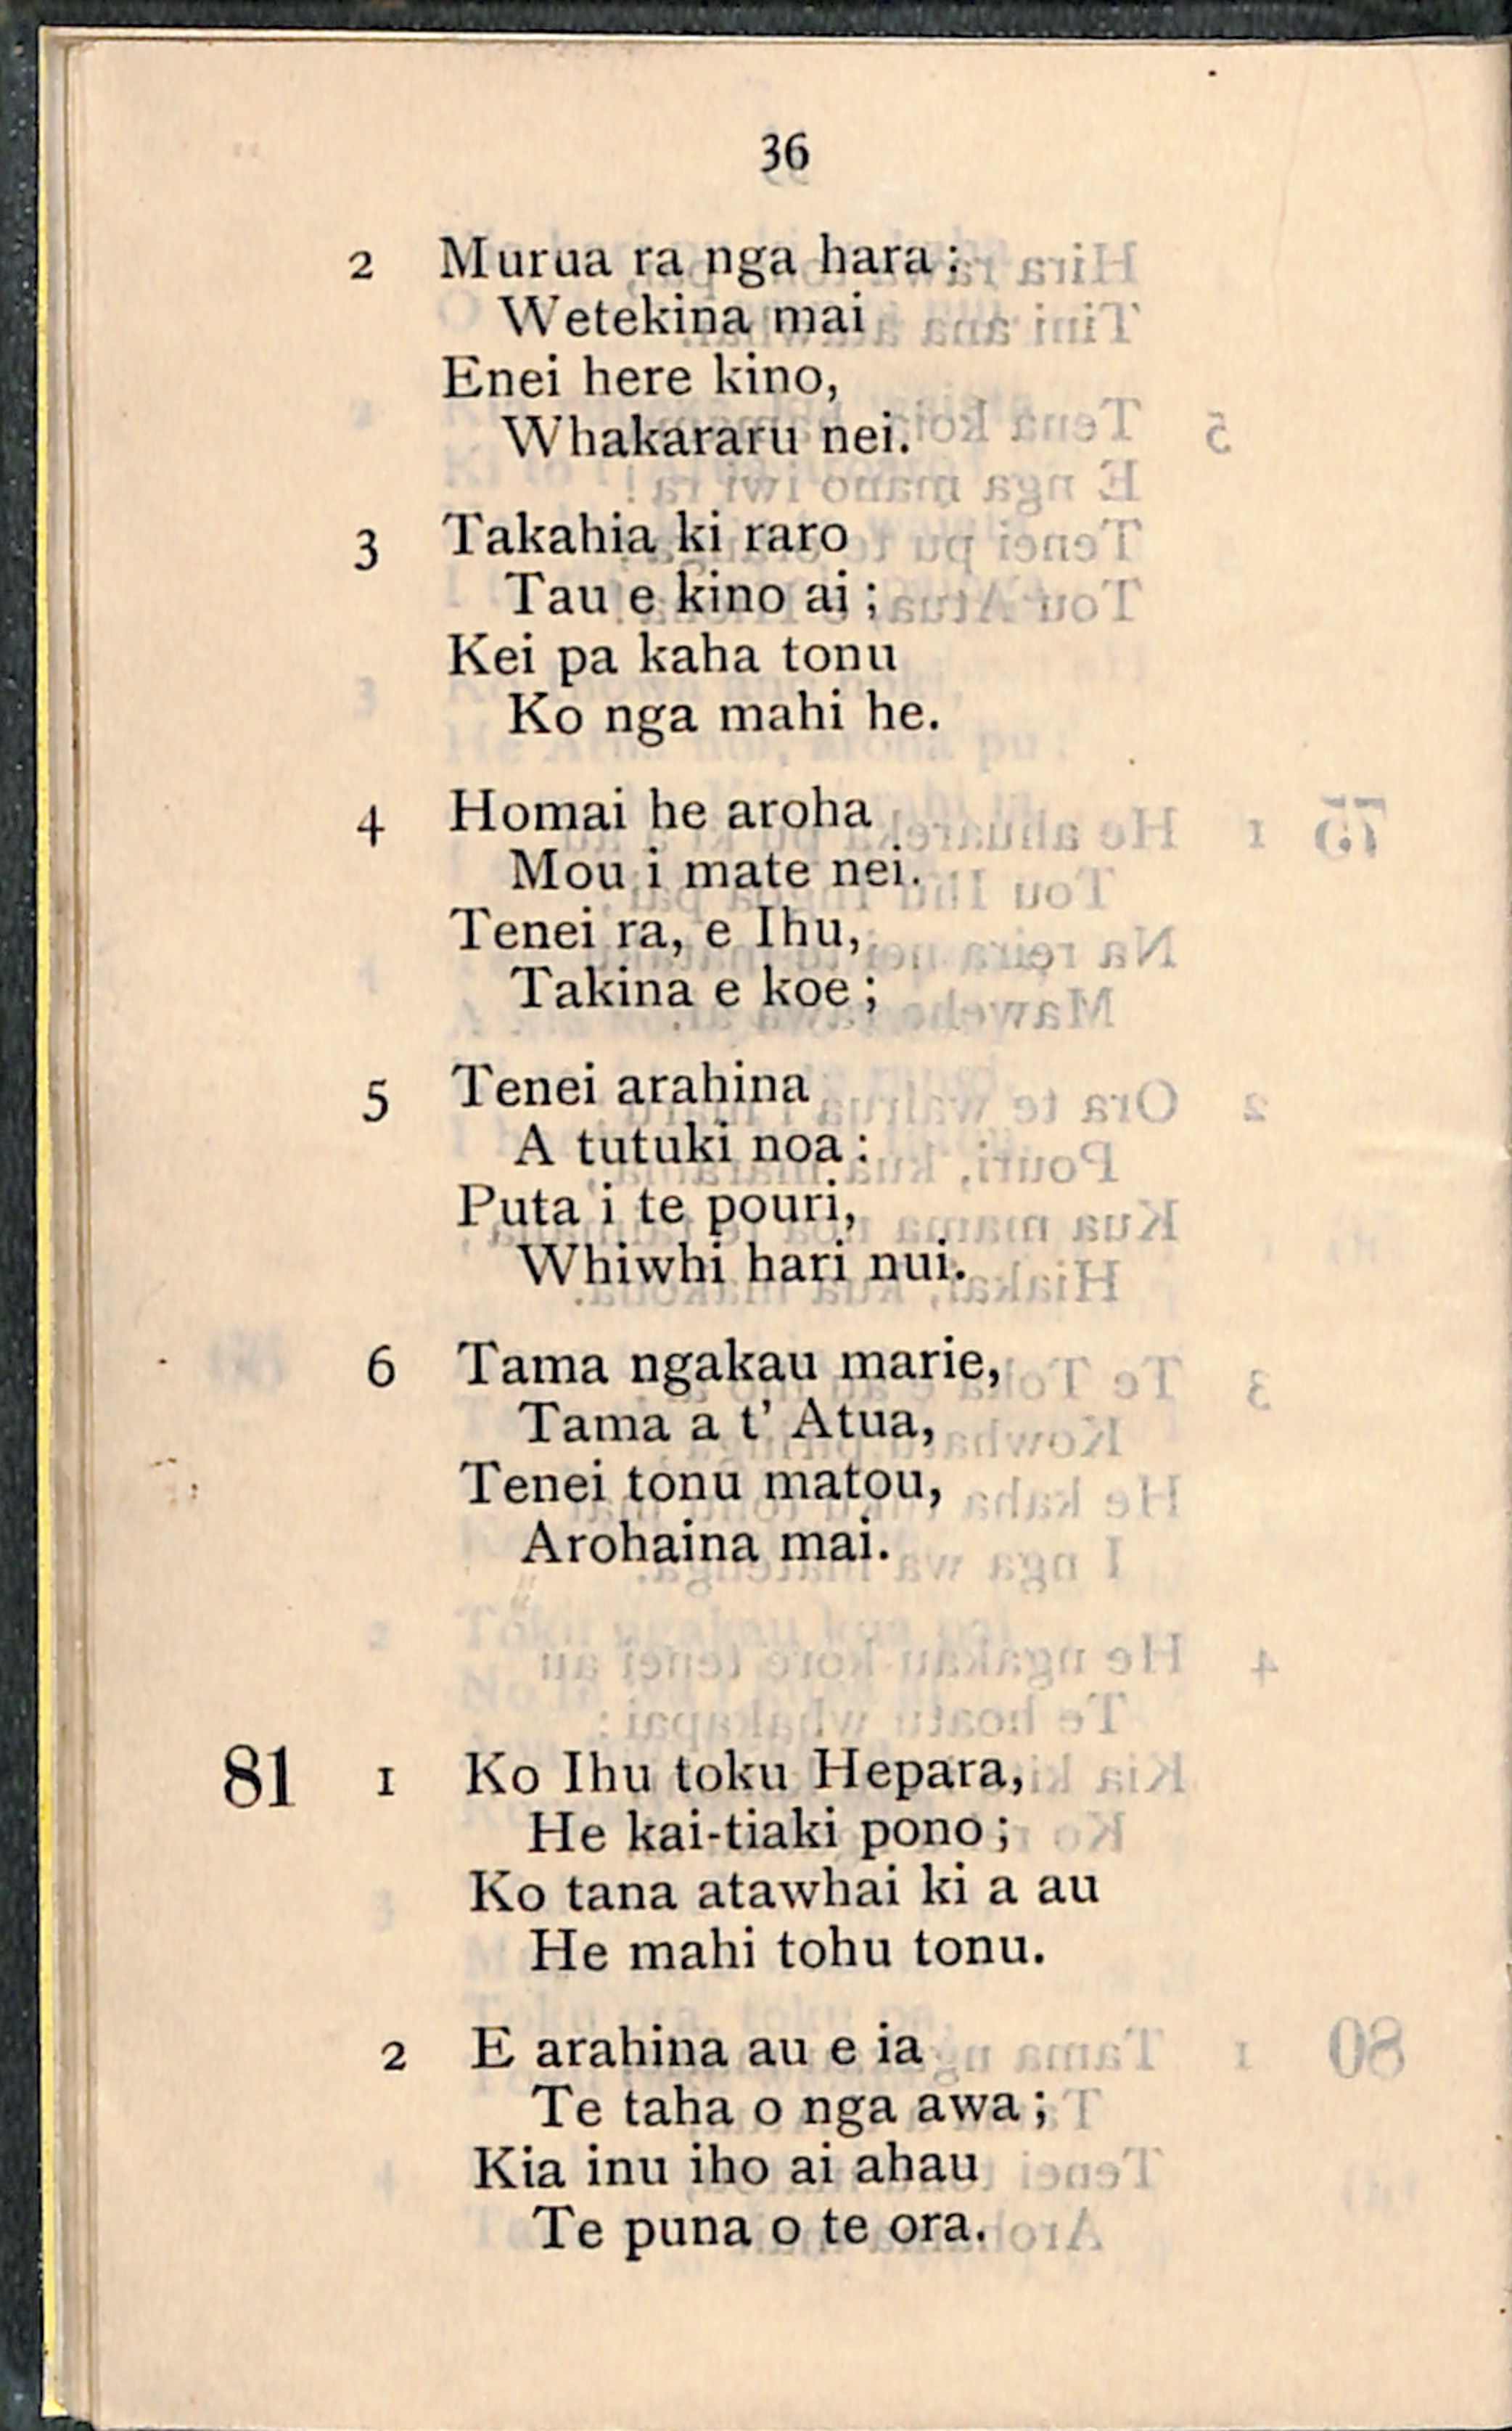 36
2 Murua ra nga hara :
Wetekina mai
Enei here kino,
Whakararu nei.
3 Takahia ki raro
Tau e kino ai ;
Kei pa kaha tonu
Ko nga mahi he.
4 Homai he aroha
Mou i mate nei.
Tenei ra, e Ihu,
Takina e koe ;
5 Tenei arahina
A tutuki noa :
Puta i te pouri,
Whiwhi hari nui.
6 Tama ngakau marie,
Tama a t' Atua,
Tenei tonu matou,
Arohaina mai.
81 1 Ko Ihu toku Hepara,
He kai-tiaki pono ;
Ko tana atawhai ki a au
He mahi tohu tonu.
2 E arahina au e ia
Te taha o nga awa ;
Kia inu iho ai ahau
Te puna o te ora.